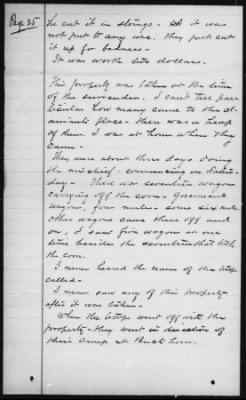 Pg 35
he cut it in strings - it was
not put to any use. they just cut
it up for badness -
It was worth two dollars.
This property was taken at the time
of the surrender. I can't tell par-
ticular how many came to the cl-
aimants place - there was a heap
of them. I was at home when they
came -
They were about three days doing
the mischief - commencing on Satur-
day - There was seventeen wagons
carrying off the corn - Government
wagons, four mules - some six mule
other wagons came there off and
on, I saw five wagons at one
time besides the seventeen that took
the corn.
I never heard the name of the troop
called -
I never saw any of this property
after it was taken -
When the troops went off with the
property - they went in direction of
their camp at Buck horn.